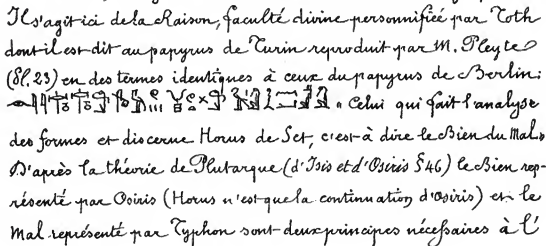 Il s'agit ici de la Raison, faculté divine personnifiée par Toth
dont il est dit au papyrus de Turin reproduit par M. Pleyte
(Pl. 23) en des termes identiques à ceux du papyrus de Berlin:
« Celui qui fait l'analyse
des formes et discerne Horus de Set, c'est à dire le Bien du Mal»
D'après la théorie de Plutarque (d'Isis et d'Osiris § 46) le Bien rep-
résenté par Osiris (Horus n'est que la continuation d'Osiris) et le
Mal représenté par Typhon sont deux principes nécessaires à l'